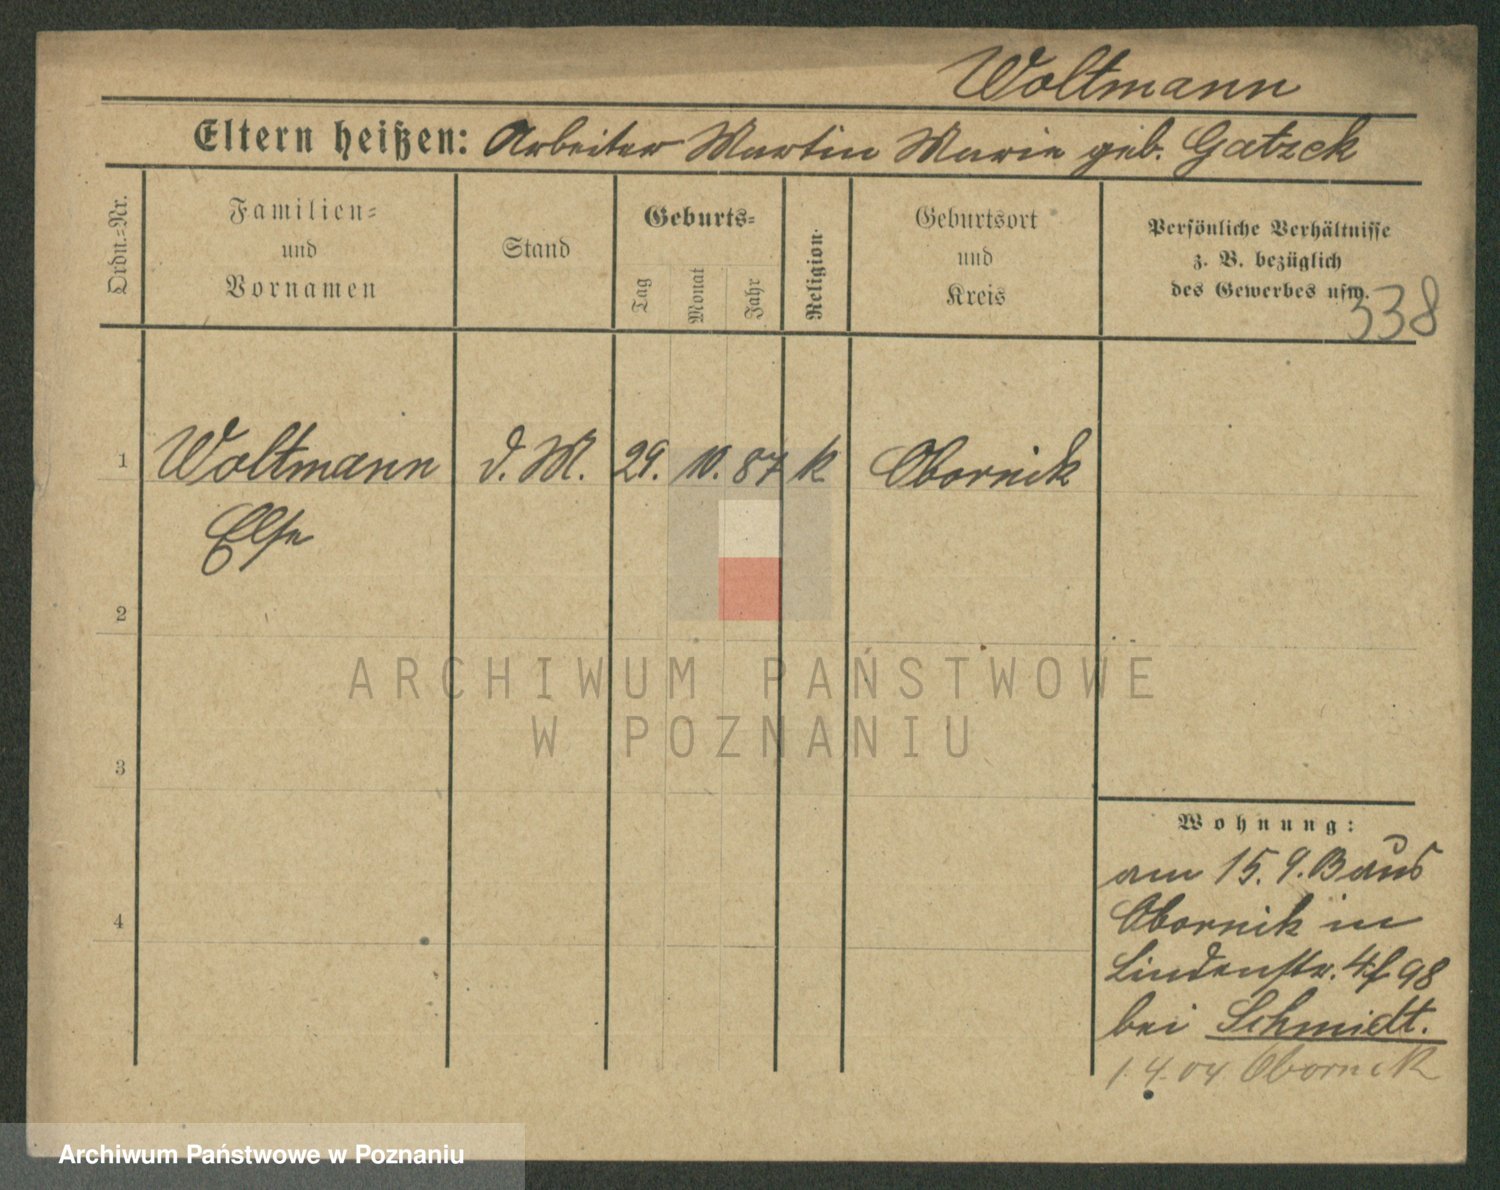 Woltmann
Eltern heißen: Arbeiter Martin Marie geb. Gatzek
Ordn.-Nr.
Familien-
und
Vornamen
Stand
Geburts-
Tag
Monat
Jahr
Religion.
Geburtsort
und
Kreis
Persönliche Verhältnisse
z. B. bezüglich
des Gewerbes usw.
338
1 Woltmann d. M. 29. 10. 87 k Obornik
Else
2
3
4
Wohnung:
am 15. 9. 03 aus
Obornik in
Lindenstr. 4f 98
bei Schmidt.
1.4.04 Obornik
ARCHIWUM PAŃSTWOWE
W POZNANIU
Archiwum Państwowe w Poznaniu